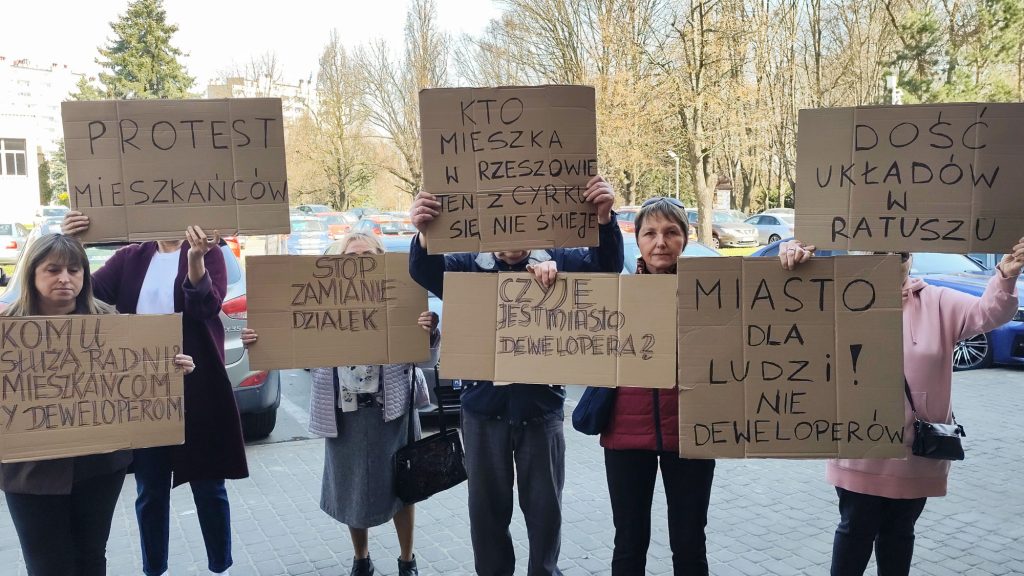 PROTEST
MIESZKAŃCÓW
KTO
MIESZKA
W RZESZOWIE
TEN Z CYRKU
SIĘ NIE ŚMIEJE
DOŚĆ
UKŁADÓW
W
RATUSZU
KOMU
SŁUŻĄ RADNI?
MIESZKAŃCOM
Y DEWELOPEROM
STOP
ZAMIANIE
DZIAŁEK
CZYJE
JEST MIASTO
DEWELOPERA?
MIASTO
DLA
LUDZI!
NIE
DEWELOPERÓW